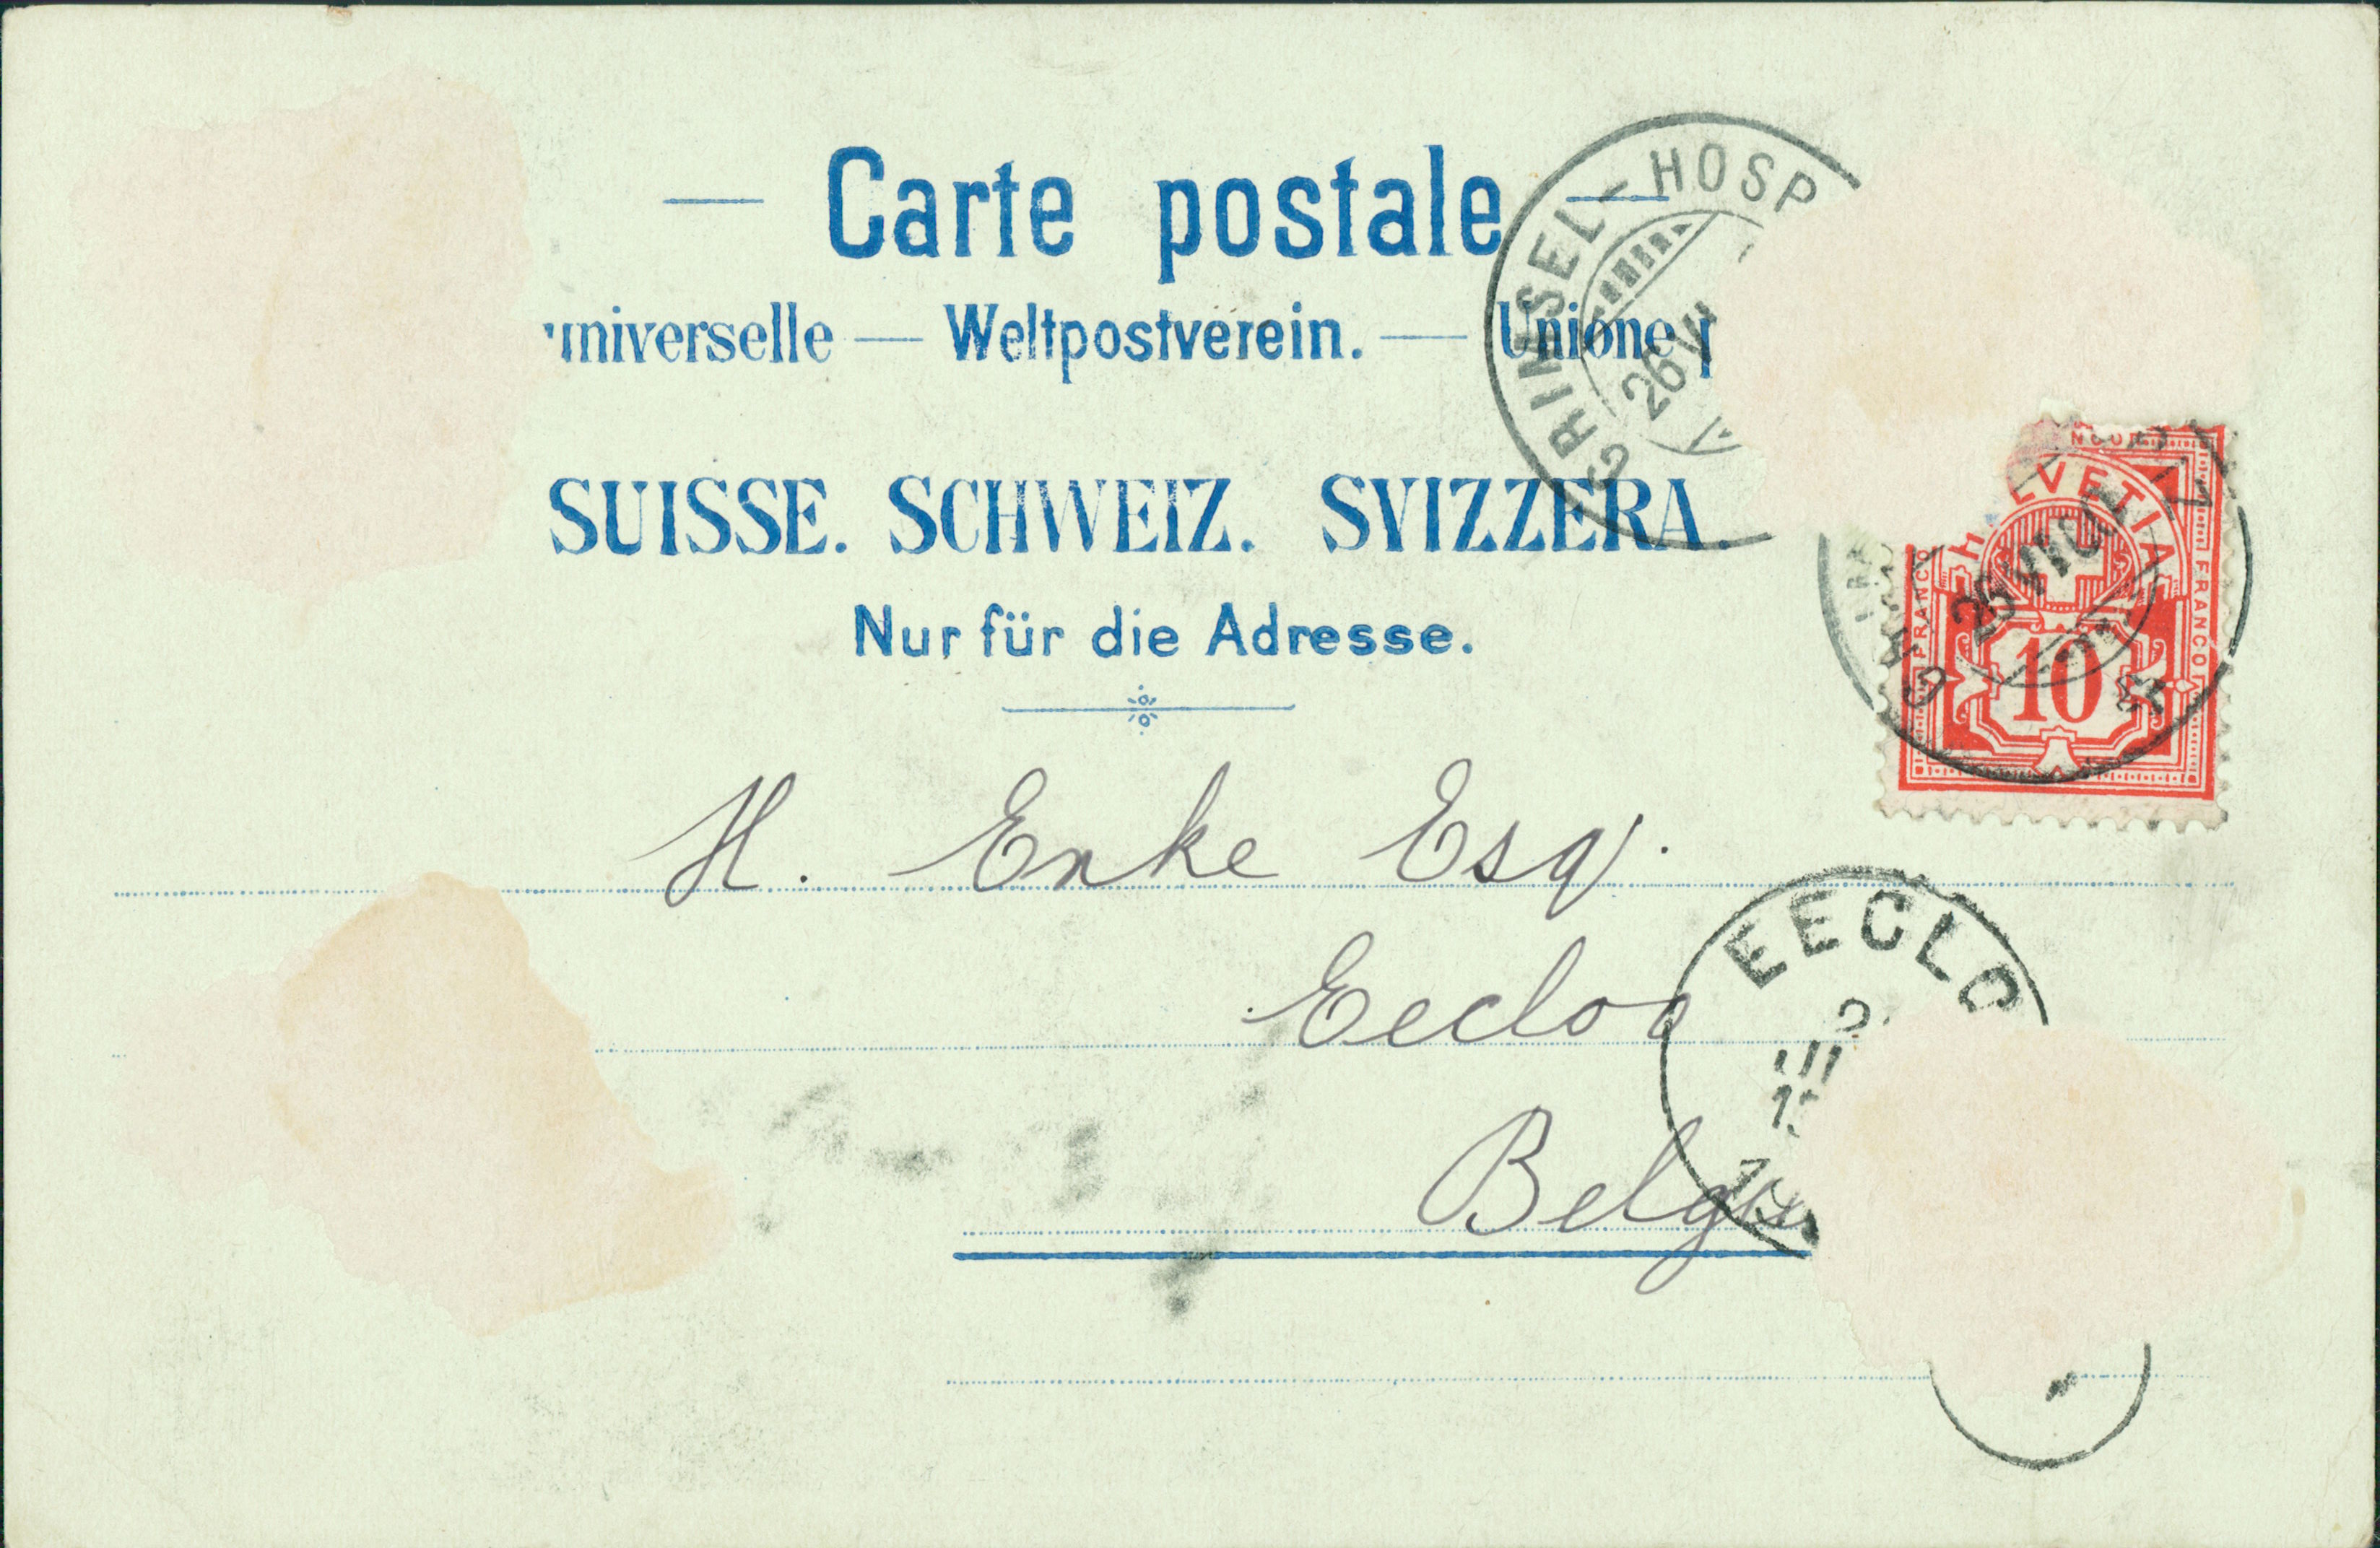 Carte postale
universelle — Weltpostverein. — Unione
SUISSE. SCHWEIZ. SVIZZERA.
Nur für die Adresse.
GRIMSEL-HOSP
26 VII
HELVETIA
FRANCO
FRANCO
10
26 VII
H. Enke Esq.
Eecloo
EECLO